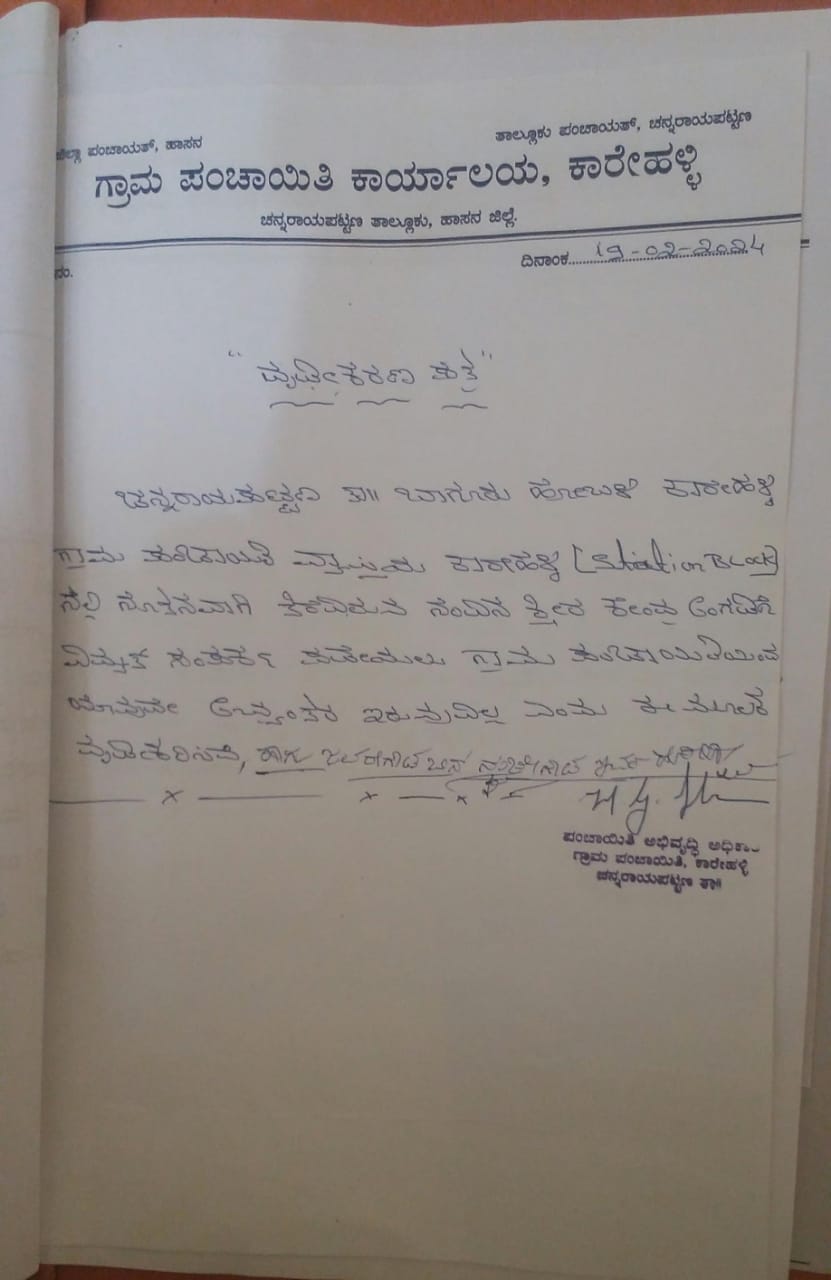 ಜಿಲ್ಲಾ ಪಂಚಾಯತ್, ಹಾಸನ
ತಾಲ್ಲೂಕು ಪಂಚಾಯತ್, ಚನ್ನರಾಯಪಟ್ಟಣ
ಗ್ರಾಮ ಪಂಚಾಯಿತಿ ಕಾರ್ಯಾಲಯ, ಕಾರೇಹಳ್ಳಿ
ಚನ್ನರಾಯಪಟ್ಟಣ ತಾಲ್ಲೂಕು, ಹಾಸನ ಜಿಲ್ಲೆ.
ನಂ.
ದಿನಾಂಕ 19-02-2024
"ದೃಢೀಕರಣ ಪತ್ರ"
ಚನ್ನರಾಯಪಟ್ಟಣ ತಾ|| ಬಾಗೂರು ಹೋಬಳಿ ಕಾರೇಹಳ್ಳಿ
ಗ್ರಾಮ ಪಂಚಾಯಿತಿ ವ್ಯಾಪ್ತಿಯ ಕಾರೇಹಳ್ಳಿ [Station Block]
ನಲ್ಲಿ ನೂತನವಾಗಿ ತೆರೆದಿರುವ ನಂದಿನಿ ಕ್ಷೀರ ಕೇಂದ್ರ ಅಂಗಡಿಗೆ
ವಿದ್ಯುತ್ ಸಂಪರ್ಕ ಪಡೆಯಲು ಗ್ರಾಮ ಪಂಚಾಯಿತಿಯಿಂದ
ಯಾವುದೇ ಅಭ್ಯಂತರ ಇರುವುದಿಲ್ಲ ಎಂದು ಈ ಮೂಲಕ
ದೃಢೀಕರಿಸಿದೆ,
ಪಂಚಾಯಿತಿ ಅಭಿವೃದ್ಧಿ ಅಧಿಕಾ
ಗ್ರಾಮ ಪಂಚಾಯಿತಿ, ಕಾರೇಹಳ್ಳಿ
ಚನ್ನರಾಯಪಟ್ಟಣ ತಾ||